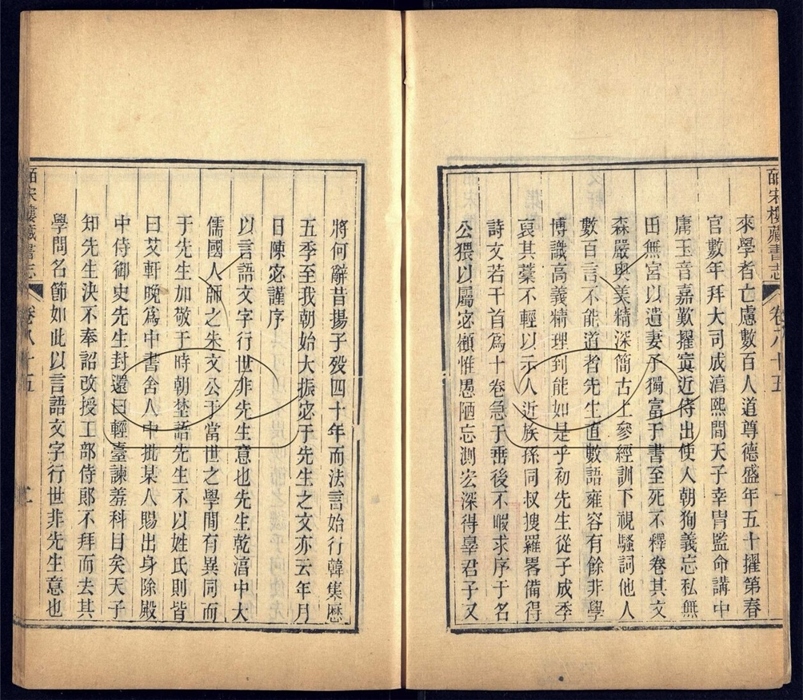 皕宋樓藏書志 卷八十五
來學者亡慮數百人道尊德盛年五十擢第春
官數年拜大司成淳熙間天子幸胄監命講中
庸玉音嘉歎擢寘近侍出使入朝狥義忘私無
田無宮以遺妻子獨富于書至死不釋卷其文
森嚴與美精深簡古上參經訓下視騷詞他人
數百言不能道者先生直數語雍容有餘非學
博識高義精理到能如是乎初先生從子成季
哀其藁不輕以示人近族孫同叔搜羅畧備得
詩文若干首爲十卷急于垂後不暇求序于名
公猥以屬宓懶惟愚陋忘測宏深得辠君子又
將何辭昔揚子歿四十年而法言始行韓集歷
五季至我朝始大振宓于先生之文亦云年月
日陳宓謹序
以言語文字行世非先生意也先生乾淳中大
儒國人師之朱文公于當世之學間有異同而
于先生加敬于時朝埜語先生不以姓氏則皆
曰艾軒晚爲中書舍人中批某人賜出身除殿
中侍御史先生封還曰輕臺諫羞科目矣天子
知先生決不奉詔改授工部侍郞不拜而去其
學問名節如此以言語文字行世非先生意也
皕宋樓藏書志 卷八十五 二